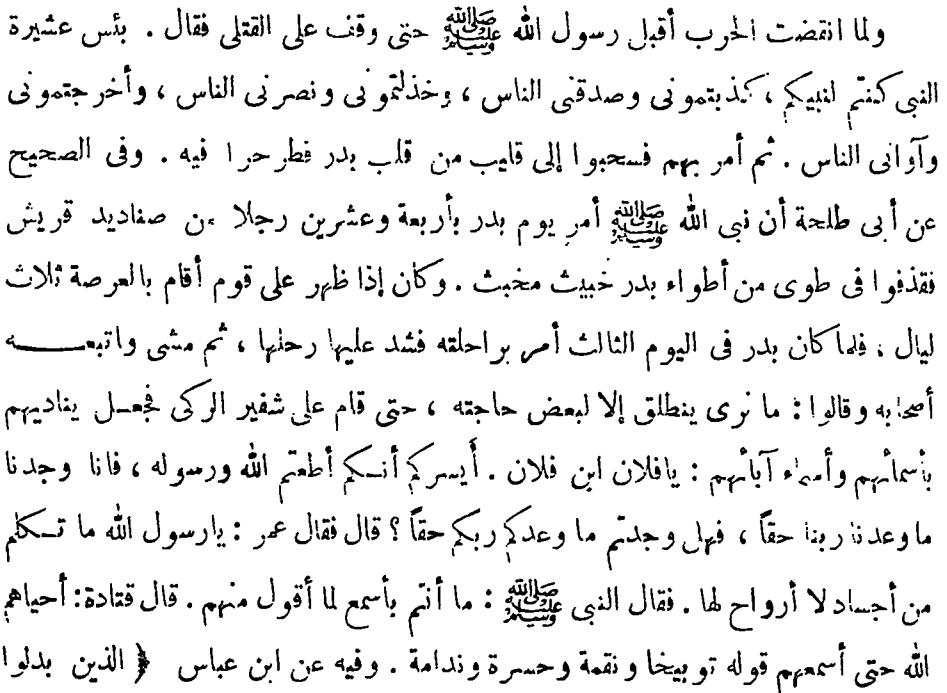 ولما انقضت الحرب أقبل رسول الله ﷺ حتى وقف على القتلى فقال . بئس عشيرة
النبى كنتم لنبيكم ، كذبتمونى وصدقنى الناس ، وخذلتمونى ونصرنى الناس ، وأخرجتمونى
وآوانى الناس . ثم أمر بهم فسحبوا إلى قليب من قلب بدر فطرحوا فيه . وفى الصحيح
عن أبى طلحة أن نبى الله ﷺ أمر يوم بدر بأربعة وعشرين رجلا من صناديد قريش
فقذفوا فى طوى من أطواء بدر خبيث مخبث . وكان إذا ظهر على قوم أقام بالعرصة ثلاث
ليال ، فلما كان بدر فى اليوم الثالث أمر براحلته فشد عليها رحلها ، ثم مشى واتبعـــه
أصحابه وقالوا : ما نرى ينطلق إلا لبعض حاجته ، حتى قام على شفير الركى فجعـل يناديهم
بأسمائهم وأسماء آبائهم : يافلان ابن فلان . أيسركم أنـكم أطعتم الله ورسوله ، فانا وجدنا
ما وعدنا ربنا حقاً ، فهل وجدتم ما وعدكم ربكم حقاً ؟ قال فقال عمر : يارسول الله ما تـكلم
من أجساد لا أرواح لها . فقال النبى ﷺ : ما أنتم بأسمع لما أقول منهم . قال قتادة : أحياهم
الله حتى أسمعهم قوله توبيخا ونقمة وحسرة وندامة . وفيه عن ابن عباس ﴿ الذين بدلوا